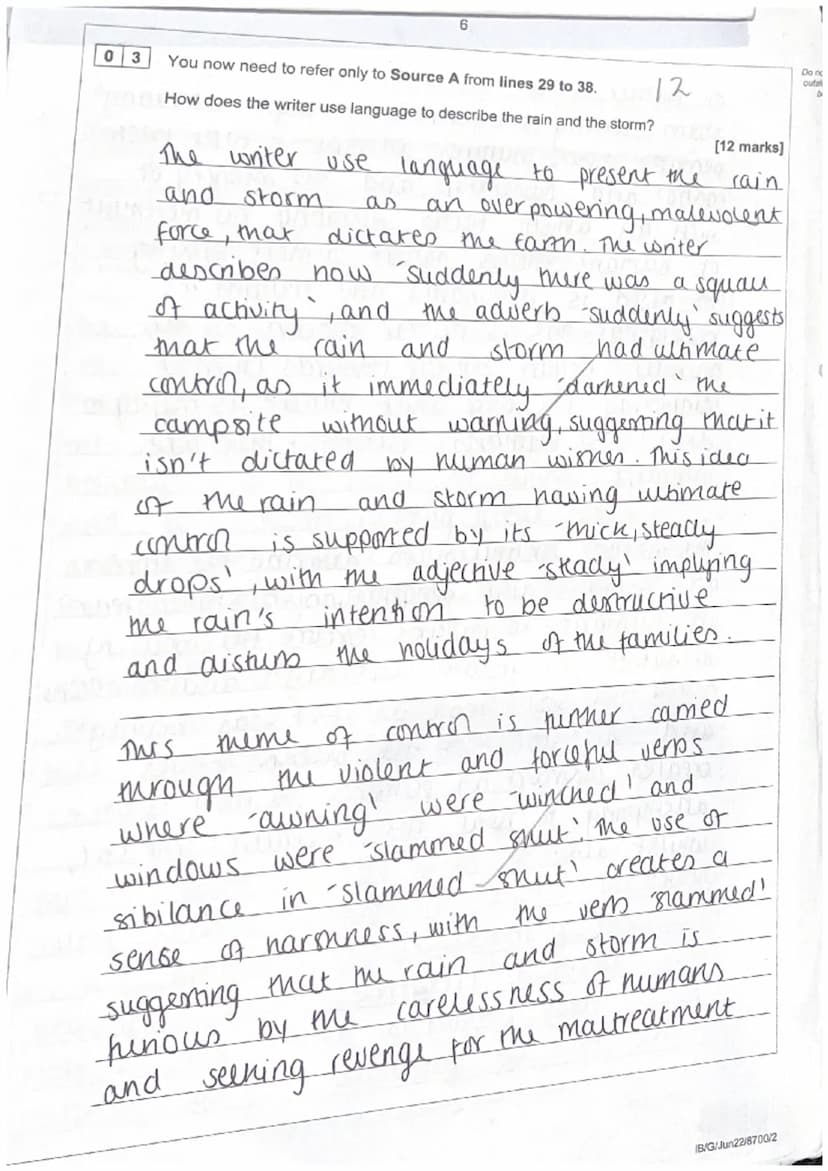 6
0 3 You now need to refer only to Source A from lines 29 to 38. 12
How does the writer use language to describe the rain and the storm?
[12 marks]
Do no
outsi
b
The writer use language to present the rain
and storm as an overpowering, malevolent
force, that dictates the farm. The writer
describes how 'suddenly there was a squall
of activity', and the adverb 'suddenly' suggests
that the rain and storm had ultimate
control, as it immediately 'darkened' the
campsite without warning, suggesting that it
isn't dictated by human wishes. This idea
of the rain and storm having ultimate
control is supported by its 'thick, steady
drops', with the adjective 'steady' implying
the rain's intention to be destructive
and disturb the holidays of the families.
This theme of control is further carried
through the violent and forceful verbs
where 'awning' were 'winched' and
windows were 'slammed shut' The use of
sibilance in 'slammed shut' creates a
sense of harshness, with the verb 'slammed'
suggesting that the rain and storm is
furious by the carelessness of humans
and seeking revenge for the maltreatment
IB/G/Jun22/8700/2